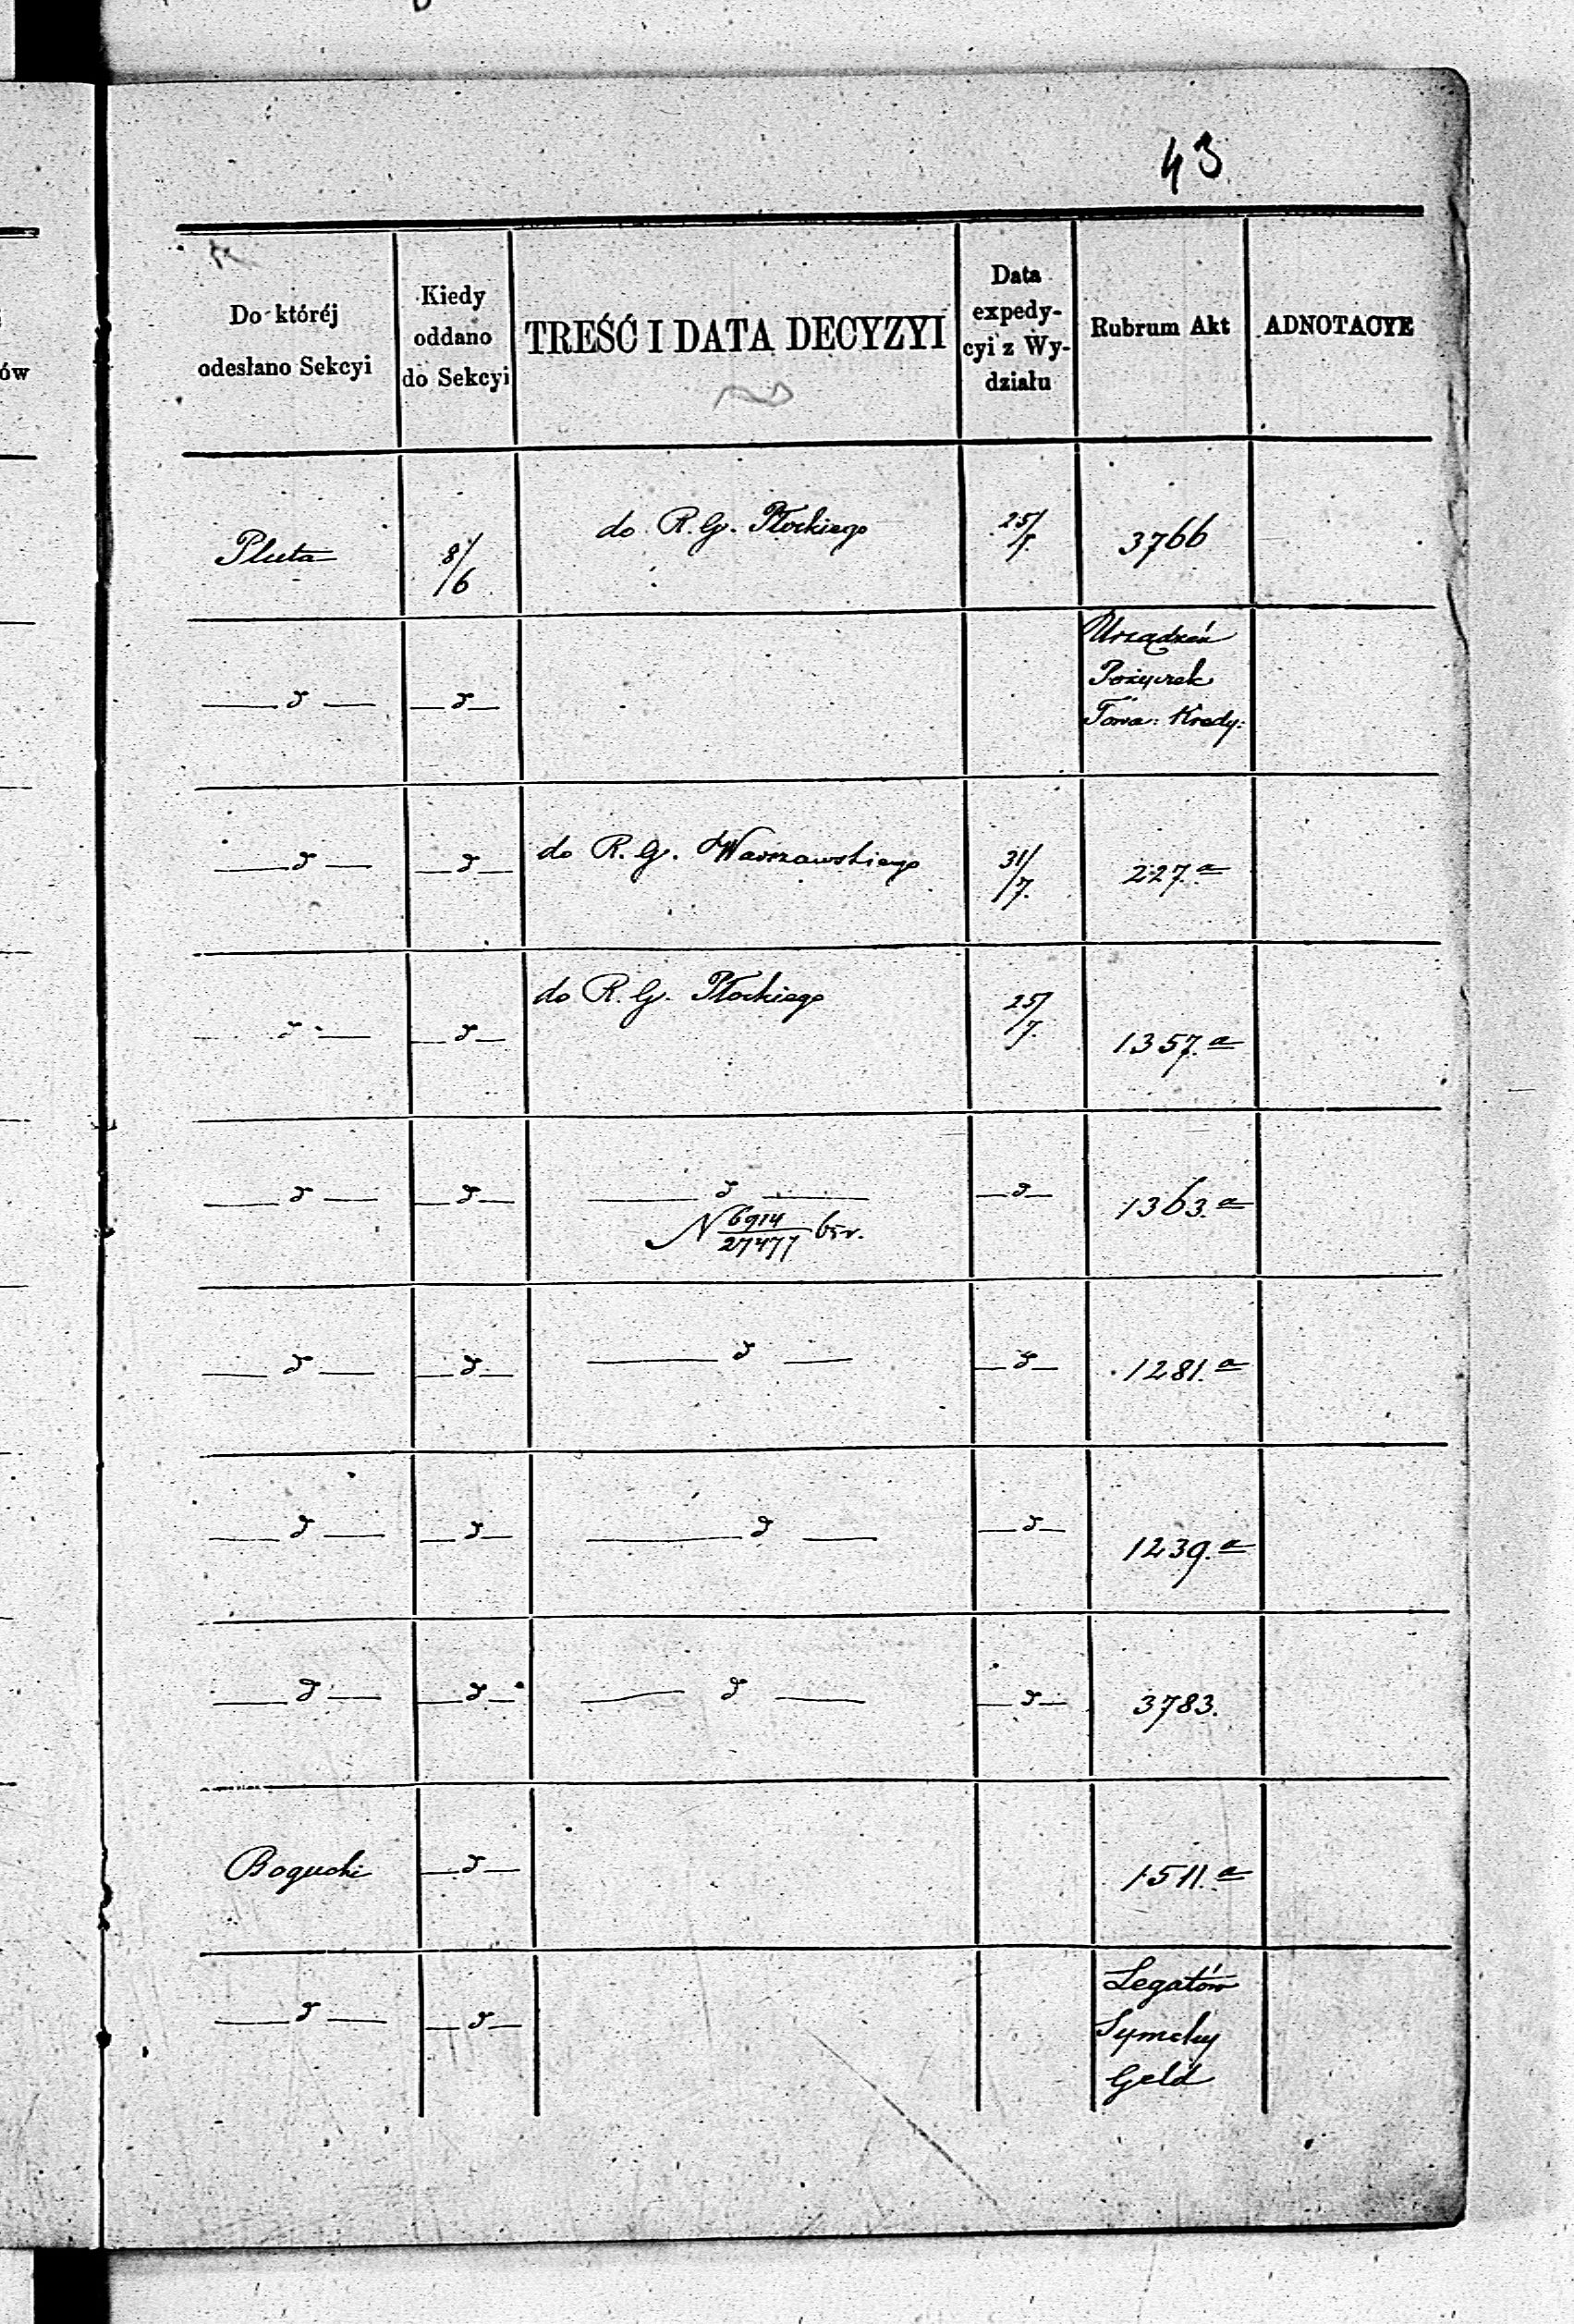 43
Do któréj
odesłano Sekcyi
Kiedy
oddano
do Sekcyi
TREŚĆ I DATA DECYZYI
Data
expedy-
cyi z Wy-
działu
Rubrum Akt
ADNOTACYE
ów
Pluta
8/6
do R. G. Płockiego
25/7.
3766
— d —
— d —
Urządzeń
Pożyczek
Towa: Kredy:
— d —
— d —
do R. G. Warszawskiego
31/7.
227.a
— d —
— d —
do R. G. Płockiego
25/7.
1357.a
— d —
— d —
— d —
N 6914/27477 65 r.
— d —
1363.a
— d —
— d —
— d —
— d —
1281.a
— d —
— d —
— d —
— d —
1239.a
— d —
— d —
— d —
— d —
3783.
Bogucki
— d —
1511.a
— d —
— d —
Legatów
Symchy
Geld